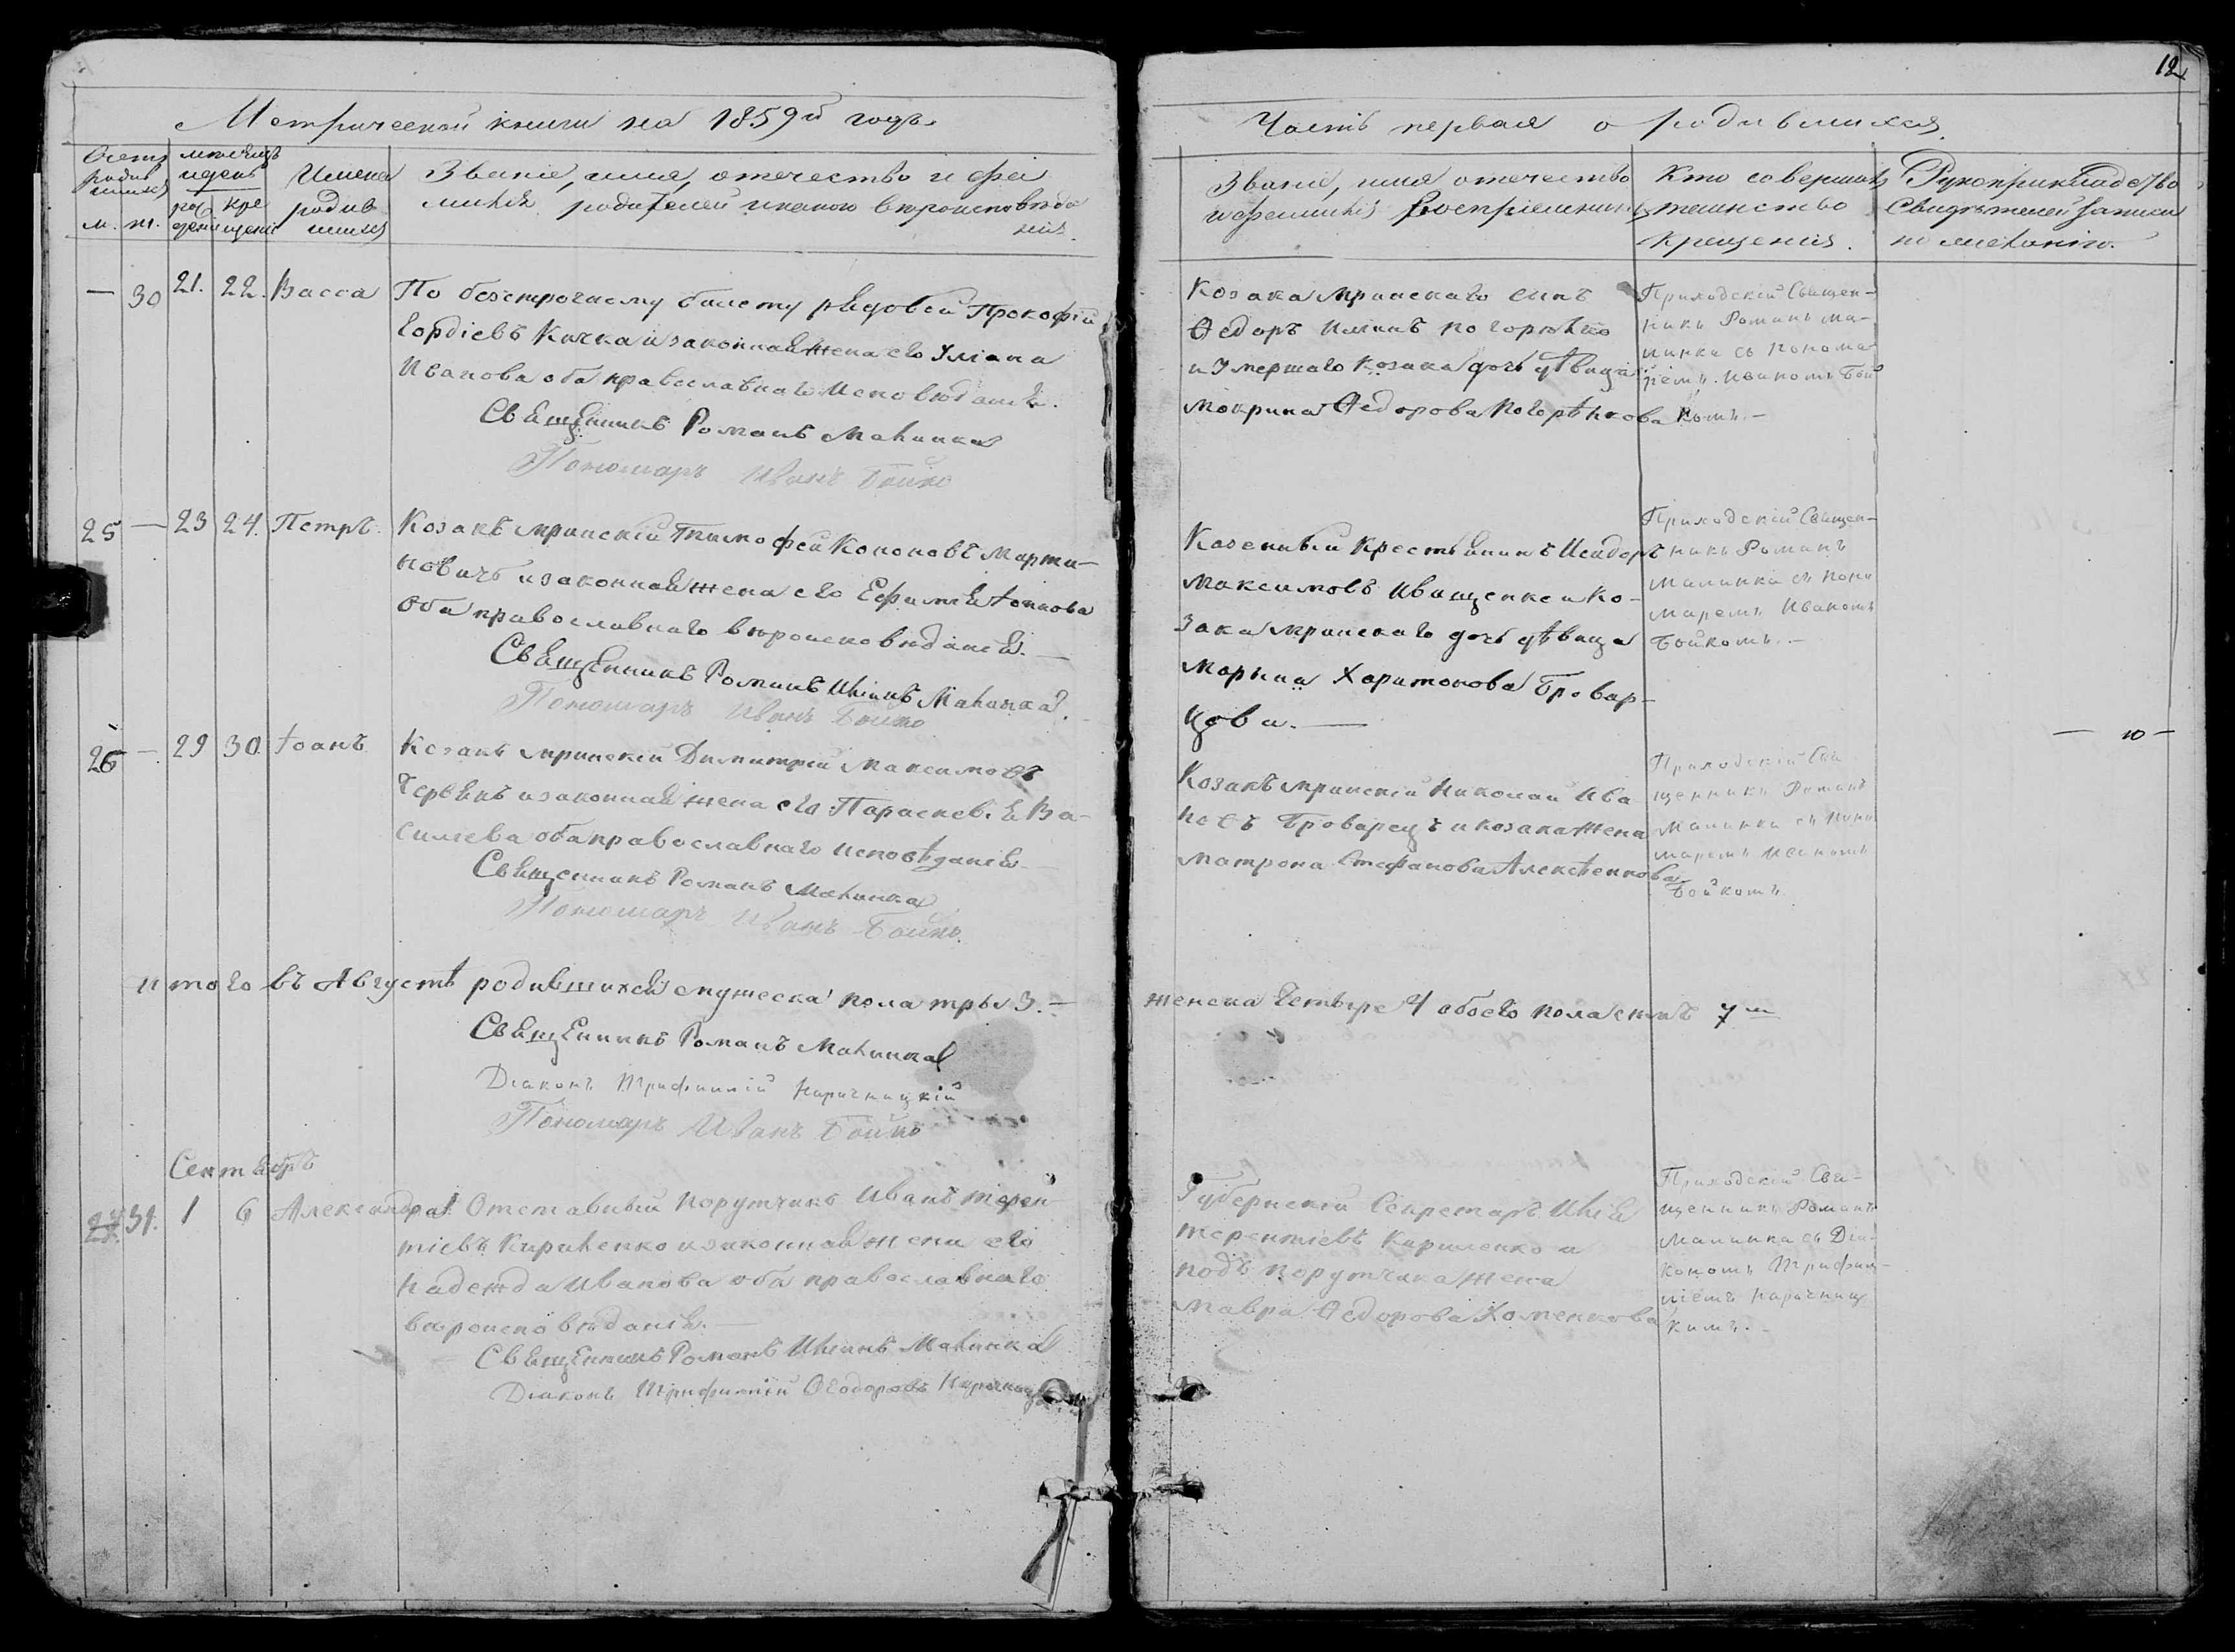 12
Метрической книги на 1859й годъ.
Часть первая о родившихся.
Счетъ родившихся
м. ж.
мѣсяцъ и день
рождени
крещені
Имена родившихся
Званіе, имя, отечество и фамилія родителей и какого вѣроисповѣданія.
Званіе, имя отечество и фамилія Воспріемниковъ
Кто совершалъ таинство Крещенія.
Рукоприкладство Свидѣтелей записи по желанію.
— 30 21. 22. Васса
По безсрочному билету рядовой Прокофій
Гордіевъ Кичка и законная жена его Уліана
Иванова оба православнаго Исповѣданія.
Священникъ Романъ Малинка
Пономарь Иванъ Бойко
Козака Мринскаго сынъ
Ѳедоръ Погорѣлко
и умершаго козака дочь дѣвица
Мокрина Ѳедорова Погорѣлкова
Приходскій Священ-
никъ Романъ Ма-
линка съ Понома-
ремъ Иваномъ Бой
комъ.—
25 — 23 24. Петръ.
Козакъ мринскій Тимофей Кононовъ Марти-
новичъ и законная жена его Ефимія
Оба православнаго вѣроисповѣданія.—
Священникъ Романъ Ильинъ Малинка.
Пономарь Иванъ Бойко
Казенный крестьянинъ Исидоръ
Максимовъ Иващенко и Ко-
зака мринскаго дочь дѣвица
Марына Харитонова Бровар-
цова.—
Приходскій Священ-
никъ Романъ
Малинка съ Поно
маремъ Иваномъ
Бойкомъ.—
26 — 29 30. Іоанъ
Козакъ мринскій Димитрій Максимовъ
Червякъ и законная жена его Параскевія Ва-
силіева оба православнаго исповѣданія
Священникъ Романъ Малинка
Пономарь Иванъ Бойко.
Козакъ мринскій Николай Ива
новъ Броварецъ и козака жена
Матрона Стефанова Алексѣенкова
Приходскій Свя
щенникъ Романъ
Малинка съ Поно
маремъ Иваномъ
Бойкомъ.
— 10 —
Итого въ Августѣ родившихся мужеска пола тры 3.—
женска Четыре 4 обоего пола семъ 7м
Священникъ Романъ Малинка
Діаконъ Трифиллій Нарачницкій
Пономарь Иванъ Бойко
Сентябрь
27 31. 1 6 Александра
Отставный Порутчикъ Иванъ Терен
тіевъ Кириленко и законная жена его
Надежда Иванова оба православнаго
вѣроисповѣданія.—
Священникъ Романъ Ильинъ Малинка
Діаконъ Трифиллій Ѳеодоровъ
Губернскій Секретарь Илія
Терентіевъ Кириленко и
подъ порутчика жена
Мавра Ѳедорова Хоменкова
Приходскій Свя-
щенникъ Романъ
Малинка съ Діа-
кономъ Трифил-
ліемъ Нарачниц
кимъ.—